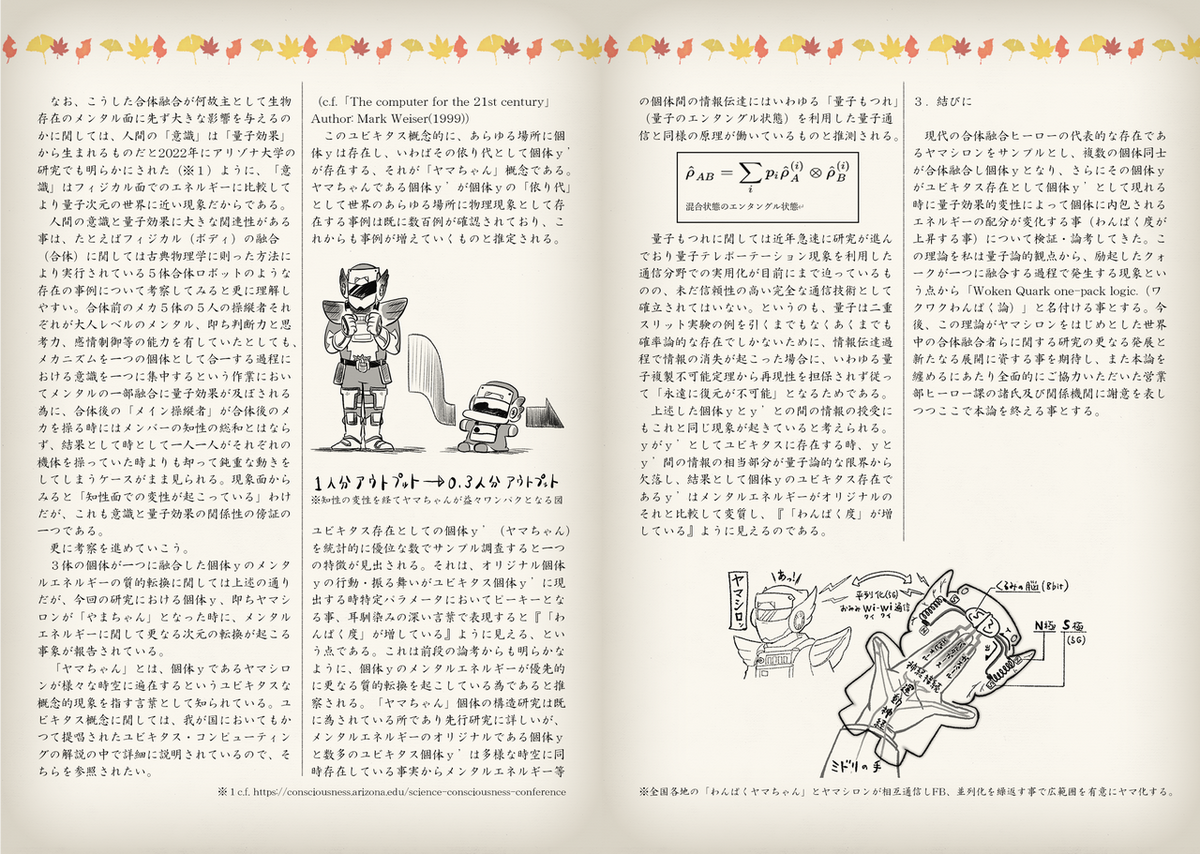 なお、こうした合体融合が何故主として生物
存在のメンタル面に先ず大きな影響を与えるの
かに関しては、人間の「意識」は「量子効果」
から生まれるものだと2022年にアリゾナ大学の
研究でも明らかにされた（※１）ように、「意
識」はフィジカル面でのエネルギーに比較して
より量子次元の世界に近い現象だからである。
人間の意識と量子効果に大きな関連性がある
事は、たとえばフィジカル（ボディ）の融合
（合体）に関しては古典物理学に則った方法に
より実行されている５体合体ロボットのような
存在の事例について考察してみると更に理解し
やすい。合体前のメカ５体の５人の操縦者それ
ぞれが大人レベルのメンタル、即ち判断力と思
考力、感情制御等の能力を有していたとしても、
メカニズムを一つの個体として合一する過程に
おける意識を一つに集中するという作業におい
てメンタルの一部融合に量子効果が及ぼされる
為に、合体後の「メイン操縦者」が合体後のメ
カを操る時にはメンバーの知性の総和とはなら
ず、結果として時として一人一人がそれぞれの
機体を操っていた時よりも却って鈍重な動きを
してしまうケースがまま見られる。現象面から
みると「知性面での変性が起こっている」わけ
だが、これも意識と量子効果の関係性の傍証の
一つである。
更に考察を進めていこう。
３体の個体が一つに融合した個体ｙのメンタ
ルエネルギーの質的転換に関しては上述の通り
だが、今回の研究における個体ｙ、即ちヤマシ
ロンが「やまちゃん」となった時に、メンタル
エネルギーに関して更なる次元の転換が起こる
事象が報告されている。
「ヤマちゃん」とは、個体ｙであるヤマシロ
ンが様々な時空に遍在するというユビキタスな
概念的現象を指す言葉として知られている。ユ
ビキタス概念に関しては、我が国においてもか
つて提唱されたユビキタス・コンピューティン
グの解説の中で詳細に説明されているので、そ
ちらを参照されたい。
（c.f.「The computer for the 21st century」
Author: Mark Weiser(1999))
このユビキタス概念的に、あらゆる場所に個
体ｙは存在し、いわばその依り代として個体ｙ’
が存在する、それが「ヤマちゃん」概念である。
ヤマちゃんである個体ｙ’が個体ｙの「依り代」
として世界のあらゆる場所に物理現象として存
在する事例は既に数百例が確認されており、こ
れからも事例が増えていくものと推定される。
1人分 アウトプット→0.3人分 アウトプット
※知性の変性を経てヤマちゃんが益々ワンパクとなる図
ユビキタス存在としての個体ｙ’（ヤマちゃん）
を統計的に優位な数でサンプル調査すると一つ
の特徴が見出される。それは、オリジナル個体
ｙの行動・振る舞いがユビキタス個体ｙ’に現
出する時特定パラメータにおいてピーキーとな
る事、耳馴染みの深い言葉で表現すると『「わ
んぱく度」が増している』ように見える、とい
う点である。これは前段の論考からも明らかな
ように、個体ｙのメンタルエネルギーが優先的
に更なる質的転換を起こしている為であると推
察される。「ヤマちゃん」個体の構造研究は既
に為されている所であり先行研究に詳しいが、
メンタルエネルギーのオリジナルである個体ｙ
と数多のユビキタス個体ｙ’は多様な時空に同
時存在している事実からメンタルエネルギー等
※１c.f. https://consciousness.arizona.edu/science-consciousness-conference
の個体間の情報伝達にはいわゆる「量子もつれ」
（量子のエンタングル状態）を利用した量子通
信と同様の原理が働いているものと推測される。
ρ̂AB = Σi pi ρ̂A(i) ⊗ ρ̂B(i)
混合状態のエンタングル状態↵
量子もつれに関しては近年急速に研究が進ん
でおり量子テレポーテーション現象を利用した
通信分野での実用化が目前にまで迫っているも
のの、未だ信頼性の高い完全な通信技術として
確立されてはいない。というのも、量子は二重
スリット実験の例を引くまでもなくあくまでも
確率論的な存在でしかないために、情報伝達過
程で情報の消失が起こった場合に、いわゆる量
子複製不可能定理から再現性を担保されず従っ
て「永遠に復元が不可能」となるためである。
上述した個体ｙとｙ’との間の情報の授受に
もこれと同じ現象が起きていると考えられる。
ｙがｙ’としてユビキタスに存在する時、ｙと
ｙ’間の情報の相当部分が量子論的な限界から
欠落し、結果として個体ｙのユビキタス存在で
あるｙ’はメンタルエネルギーがオリジナルの
それと比較して変質し、『「わんぱく度」が増
している』ように見えるのである。
３．結びに
現代の合体融合ヒーローの代表的な存在であ
るヤマシロンをサンプルとし、複数の個体同士
が合体融合し個体ｙとなり、さらにその個体ｙ
がユビキタス存在として個体ｙ’として現れる
時に量子効果的変性によって個体に内包される
エネルギーの配分が変化する事（わんぱく度が
上昇する事）について検証・論考してきた。こ
の理論を私は量子論的観点から、励起したクォ
ークが一つに融合する過程で発生する現象とい
う点から「Woken Quark one-pack logic.（ワ
クワクわんぱく論）」と名付ける事とする。今
後、この理論がヤマシロンをはじめとした世界
中の合体融合者らに関する研究の更なる発展と
新たなる展開に資する事を期待し、また本論を
纏めるにあたり全面的にご協力いただいた営業
部ヒーロー課の諸氏及び関係機関に謝意を表し
つつここで本論を終える事とする。
ヤマシロン
あっ!
平列化(5G)
おみみ Wi-Wi通信
ワイ ワイ
くるみの脳(8bit)
N極 S極
(5G)
運動神経
ミドリの手
※全国各地の「わんぱくヤマちゃん」とヤマシロンが相互通信しFB、並列化を繰返す事で広範囲を有意にヤマ化する。